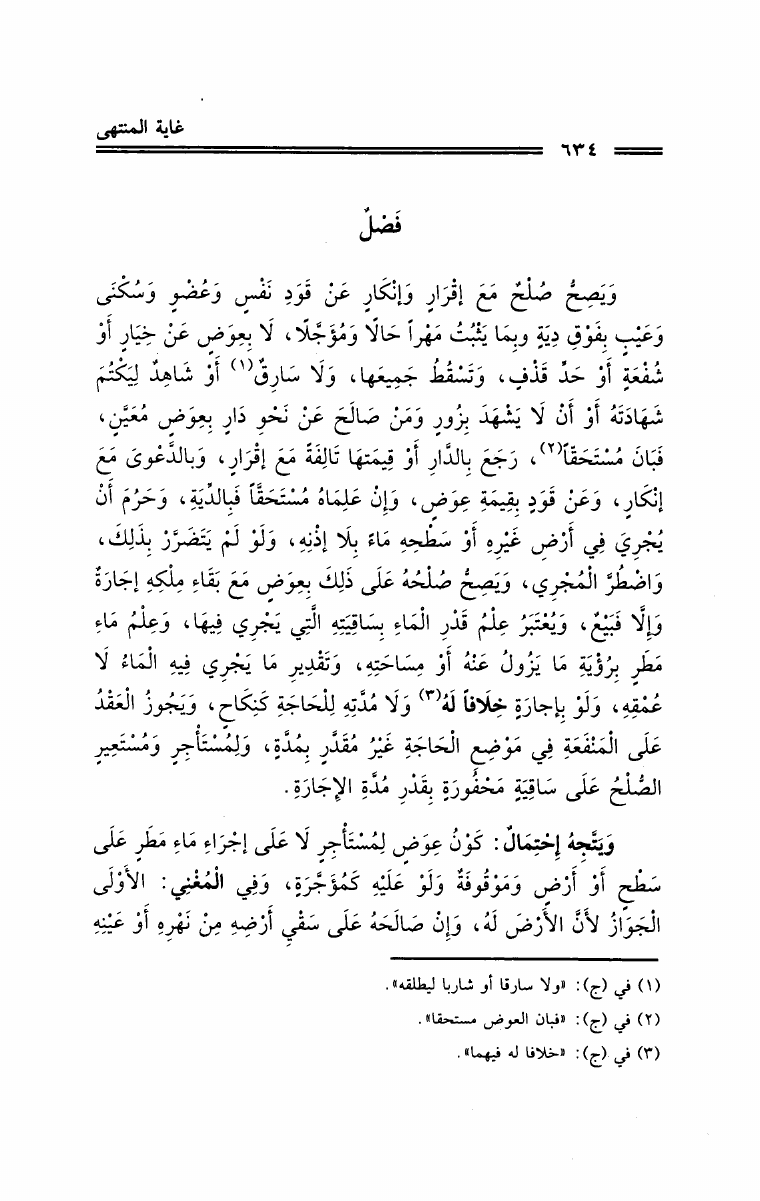 غاية المنتهى
٦٣٤
فَصْلٌ
وَيَصِحُّ صُلْحٌ مَعَ إقْرَارٍ وَإنْكَارٍ عَنْ قَوَدِ نَفْسٍ وَعُضْوٍ وَسُكْنَى
وَعَيْبٍ بِفَوْقِ دِيَةٍ وبِمَا يَثْبُتُ مَهْراً حَالًا وَمُؤَجَّلًا، لَا بِعِوَضٍ عَنْ خِيَارٍ أَوْ
شُفْعَةٍ أَوْ حَدِّ قَذْفٍ، وَتَسْقُطُ جَمِيعَها، وَلَا سَارِقٌ(١) أَوْ شَاهِدٌ لِيَكْتُمَ
شَهَادَتَهُ أَوْ أَنْ لَا يَشْهَدَ بِزُورٍ وَمَنْ صَالَحَ عَنْ نَحْوِ دَارٍ بِعِوَضٍ مُعَيَّنٍ،
فَبَانَ مُسْتَحَقاً(٢)، رَجَعَ بِالدَّارِ أَوْ قِيمَتهَا تَالِفَةً مَعَ إقْرَارٍ، وَبالدَّعْوىَ مَعَ
إنْكَارٍ، وَعَنْ قَوَدٍ بِقِيمَةِ عِوَضٍ، وَإنْ عَلِمَاهُ مُسْتَحَقًّا فَبِالدِّيَةِ، وَحَرُمَ أَنْ
يُجْرِيَ فِي أَرْضِ غَيْرِهِ أَوْ سَطْحِهِ مَاءً بِلَا إذْنِهِ، وَلَوْ لَمْ يَتَضَرَّرْ بِذَلِكَ،
وَاضْطُرَّ الْمُجْرِي، وَيَصِحُّ صُلْحُهُ عَلَى ذَلِكَ بِعِوَضٍ مَعَ بَقَاءِ مِلْكِهِ إجَارَةٌ
وَإلَّا فَبَيْعٌ، وَيُعْتَبَرُ عِلْمُ قَدْرِ الْمَاءِ بِسَاقِيَتِهِ الَّتِي يَجْرِي فِيهَا، وَعِلْمُ مَاءِ
مَطَرٍ بِرُؤْيَةِ مَا يَزُولُ عَنْهُ أَوْ مِسَاحَتِهِ، وَتَقْدِيرِ مَا يَجْرِي فِيهِ الْمَاءُ لَا
عُمْقِهِ، وَلَوْ بِإجارَةٍ خِلَافاً لَهُ(٣) وَلَا مُدَّتِهِ لِلْحَاجَةِ كَنِكَاحٍ، وَيَجُوزُ الْعَقْدُ
عَلَى الْمَنْفَعَةِ فِي مَوْضِعِ الْحَاجَةِ غَيْرُ مُقَدَّرٍ بِمُدَّةٍ، وَلِمُسْتَأْجِرٍ وَمُسْتَعِيرٍ
الصُّلْحُ عَلَى سَاقِيَةٍ مَحْفُورَةٍ بِقَدْرِ مُدَّةِ الإجَارَةِ.
وَيَتَّجِهُ إحْتِمَالٌ: كَوْنُ عِوَضٍ لِمُسْتَأْجِرٍ لَا عَلَى إجْرَاءِ مَاءِ مَطَرٍ عَلَى
سَطْحٍ أَوْ أَرْضٍ وَمَوْقُوفَةٌ وَلَوْ عَلَيْهِ كَمُؤَجَّرَةٍ، وَفِي الْمُغْنِي: الأَوْلَى
الْجَوَازُ لأَنَّ الأَرْضَ لَهُ، وَإنْ صَالَحَهُ عَلَى سَقْيِ أَرْضِهِ مِنْ نَهْرِهِ أَوْ عَيْنِهِ
(١) في (ج): «ولا سارقا أو شاربا ليطلقه».
(٢) في (ج): «فبان العوض مستحقا».
(٣) في (ج): «خلافا له فيهما».